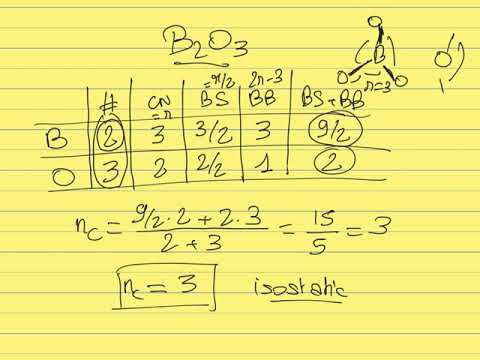 B₂O₃
O
B
O O
r=3
O
=r/2 2r-3
# CN BS BB BS+BB
=r
B 2 3 3/2 3 9/2
O 3 2 2/2 1 2
n_c = 9/2·2 + 2·3 / 2+3 = 15/5 = 3
n_c = 3 isostatic